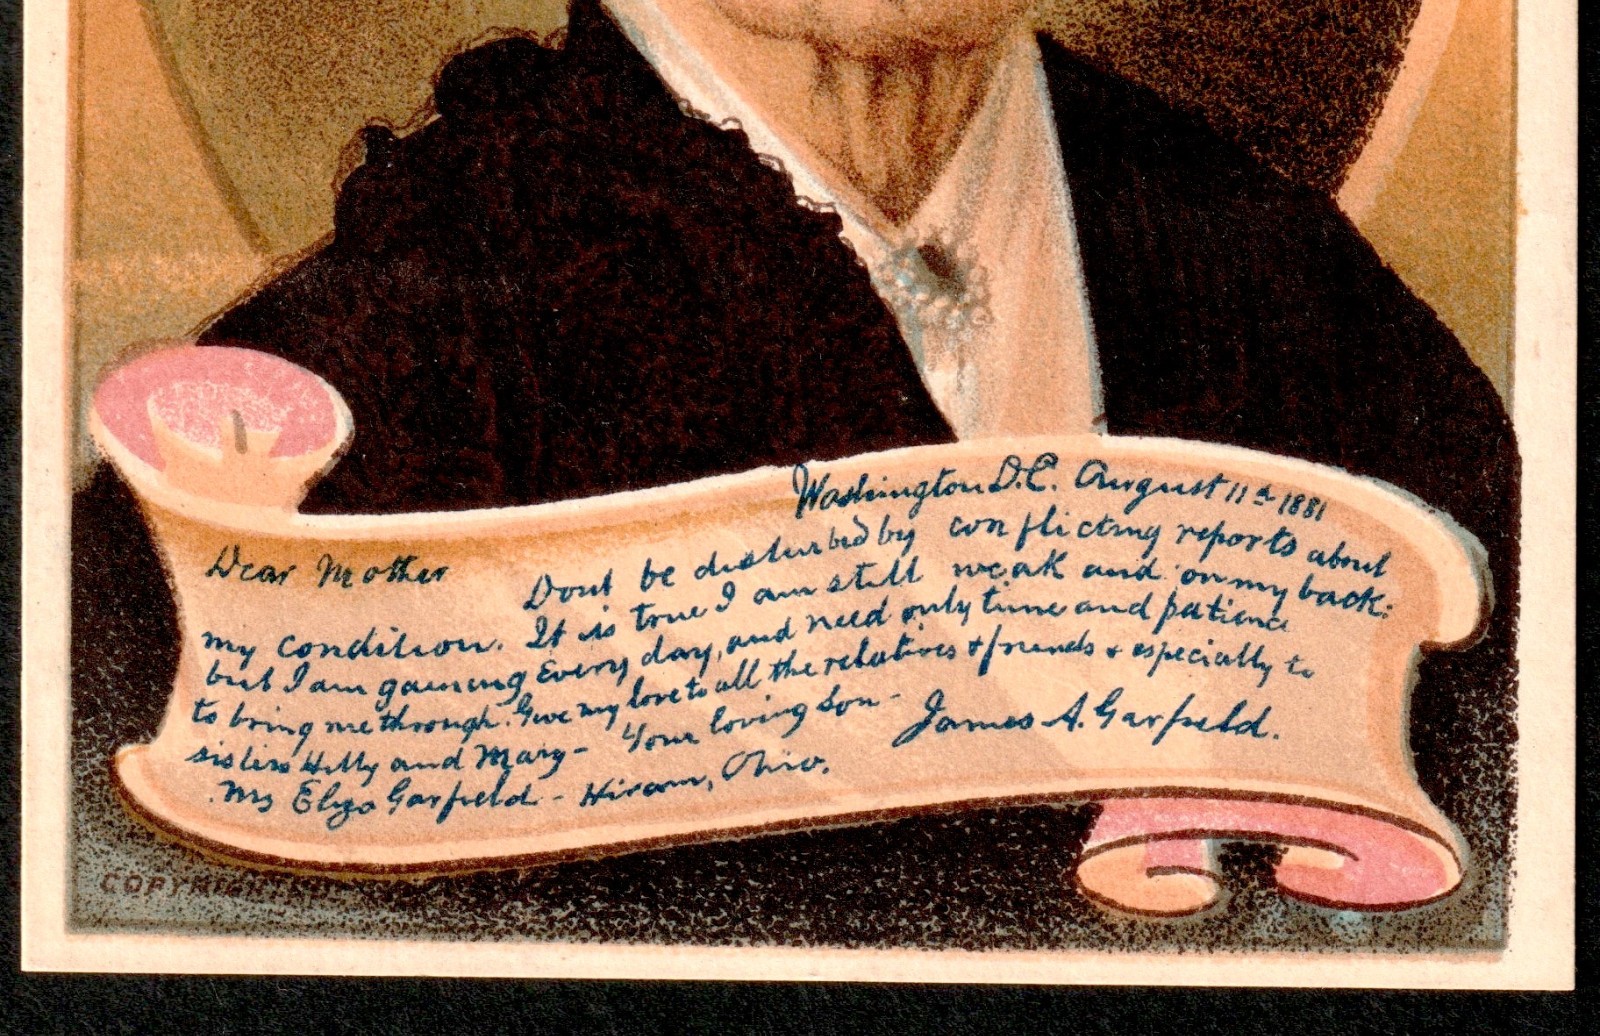 Washington D.C. August 11th 1881
Dear Mother
Dont be disturbed by conflicting reports about
my condition. It is true I am still weak and on my back:
but I am gaining every day, and need only time and patience
to bring me through. Give my love to all the relatives & friends & especially to
sisters Hitty and Mary- Your loving Son -
James A. Garfield.
Mrs Eliza Garfield - Hiram, Ohio.
COPYRIGHT